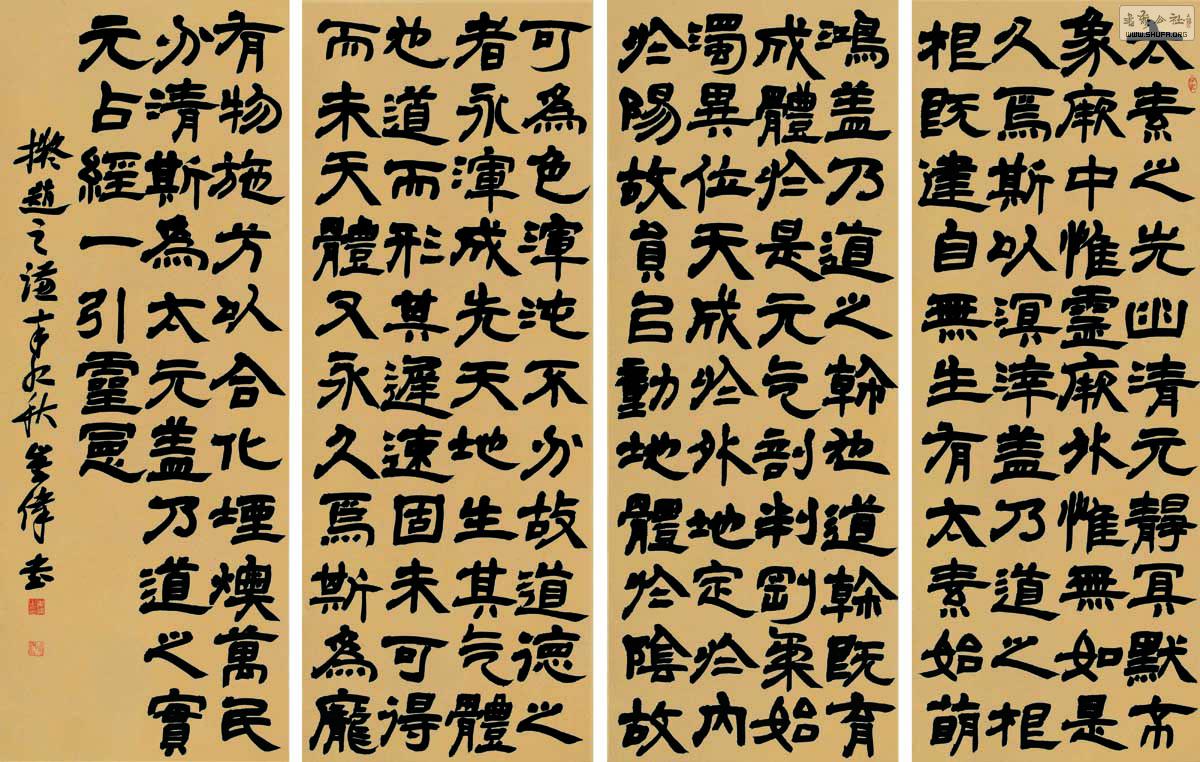 太素之先幽清元靜冥默不
象厥中惟靈厥外惟無如是
久焉斯以溟涬盖乃道之根
根既建自無生有太素始萌
鴻盖乃道之幹也道幹既育
成體於是元气剖判剛柔始
濁異位天成於外地定於内
於陽故員㠯動地體於陰故
可為色渾沌不分故道德之
者永渾成先天地生其气體
也道而形其遲速固未可得
而未天體又永久焉斯為龐
有物施方以合化堙燠萬民
分清斯為太元盖乃道之實
元占經一引靈憲
擬趙之謙辛卯秋偉書
書法公社
WWW.SHUFA.ORG